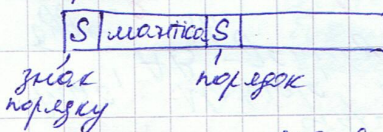 S мантіса S
знак порядок
порядку